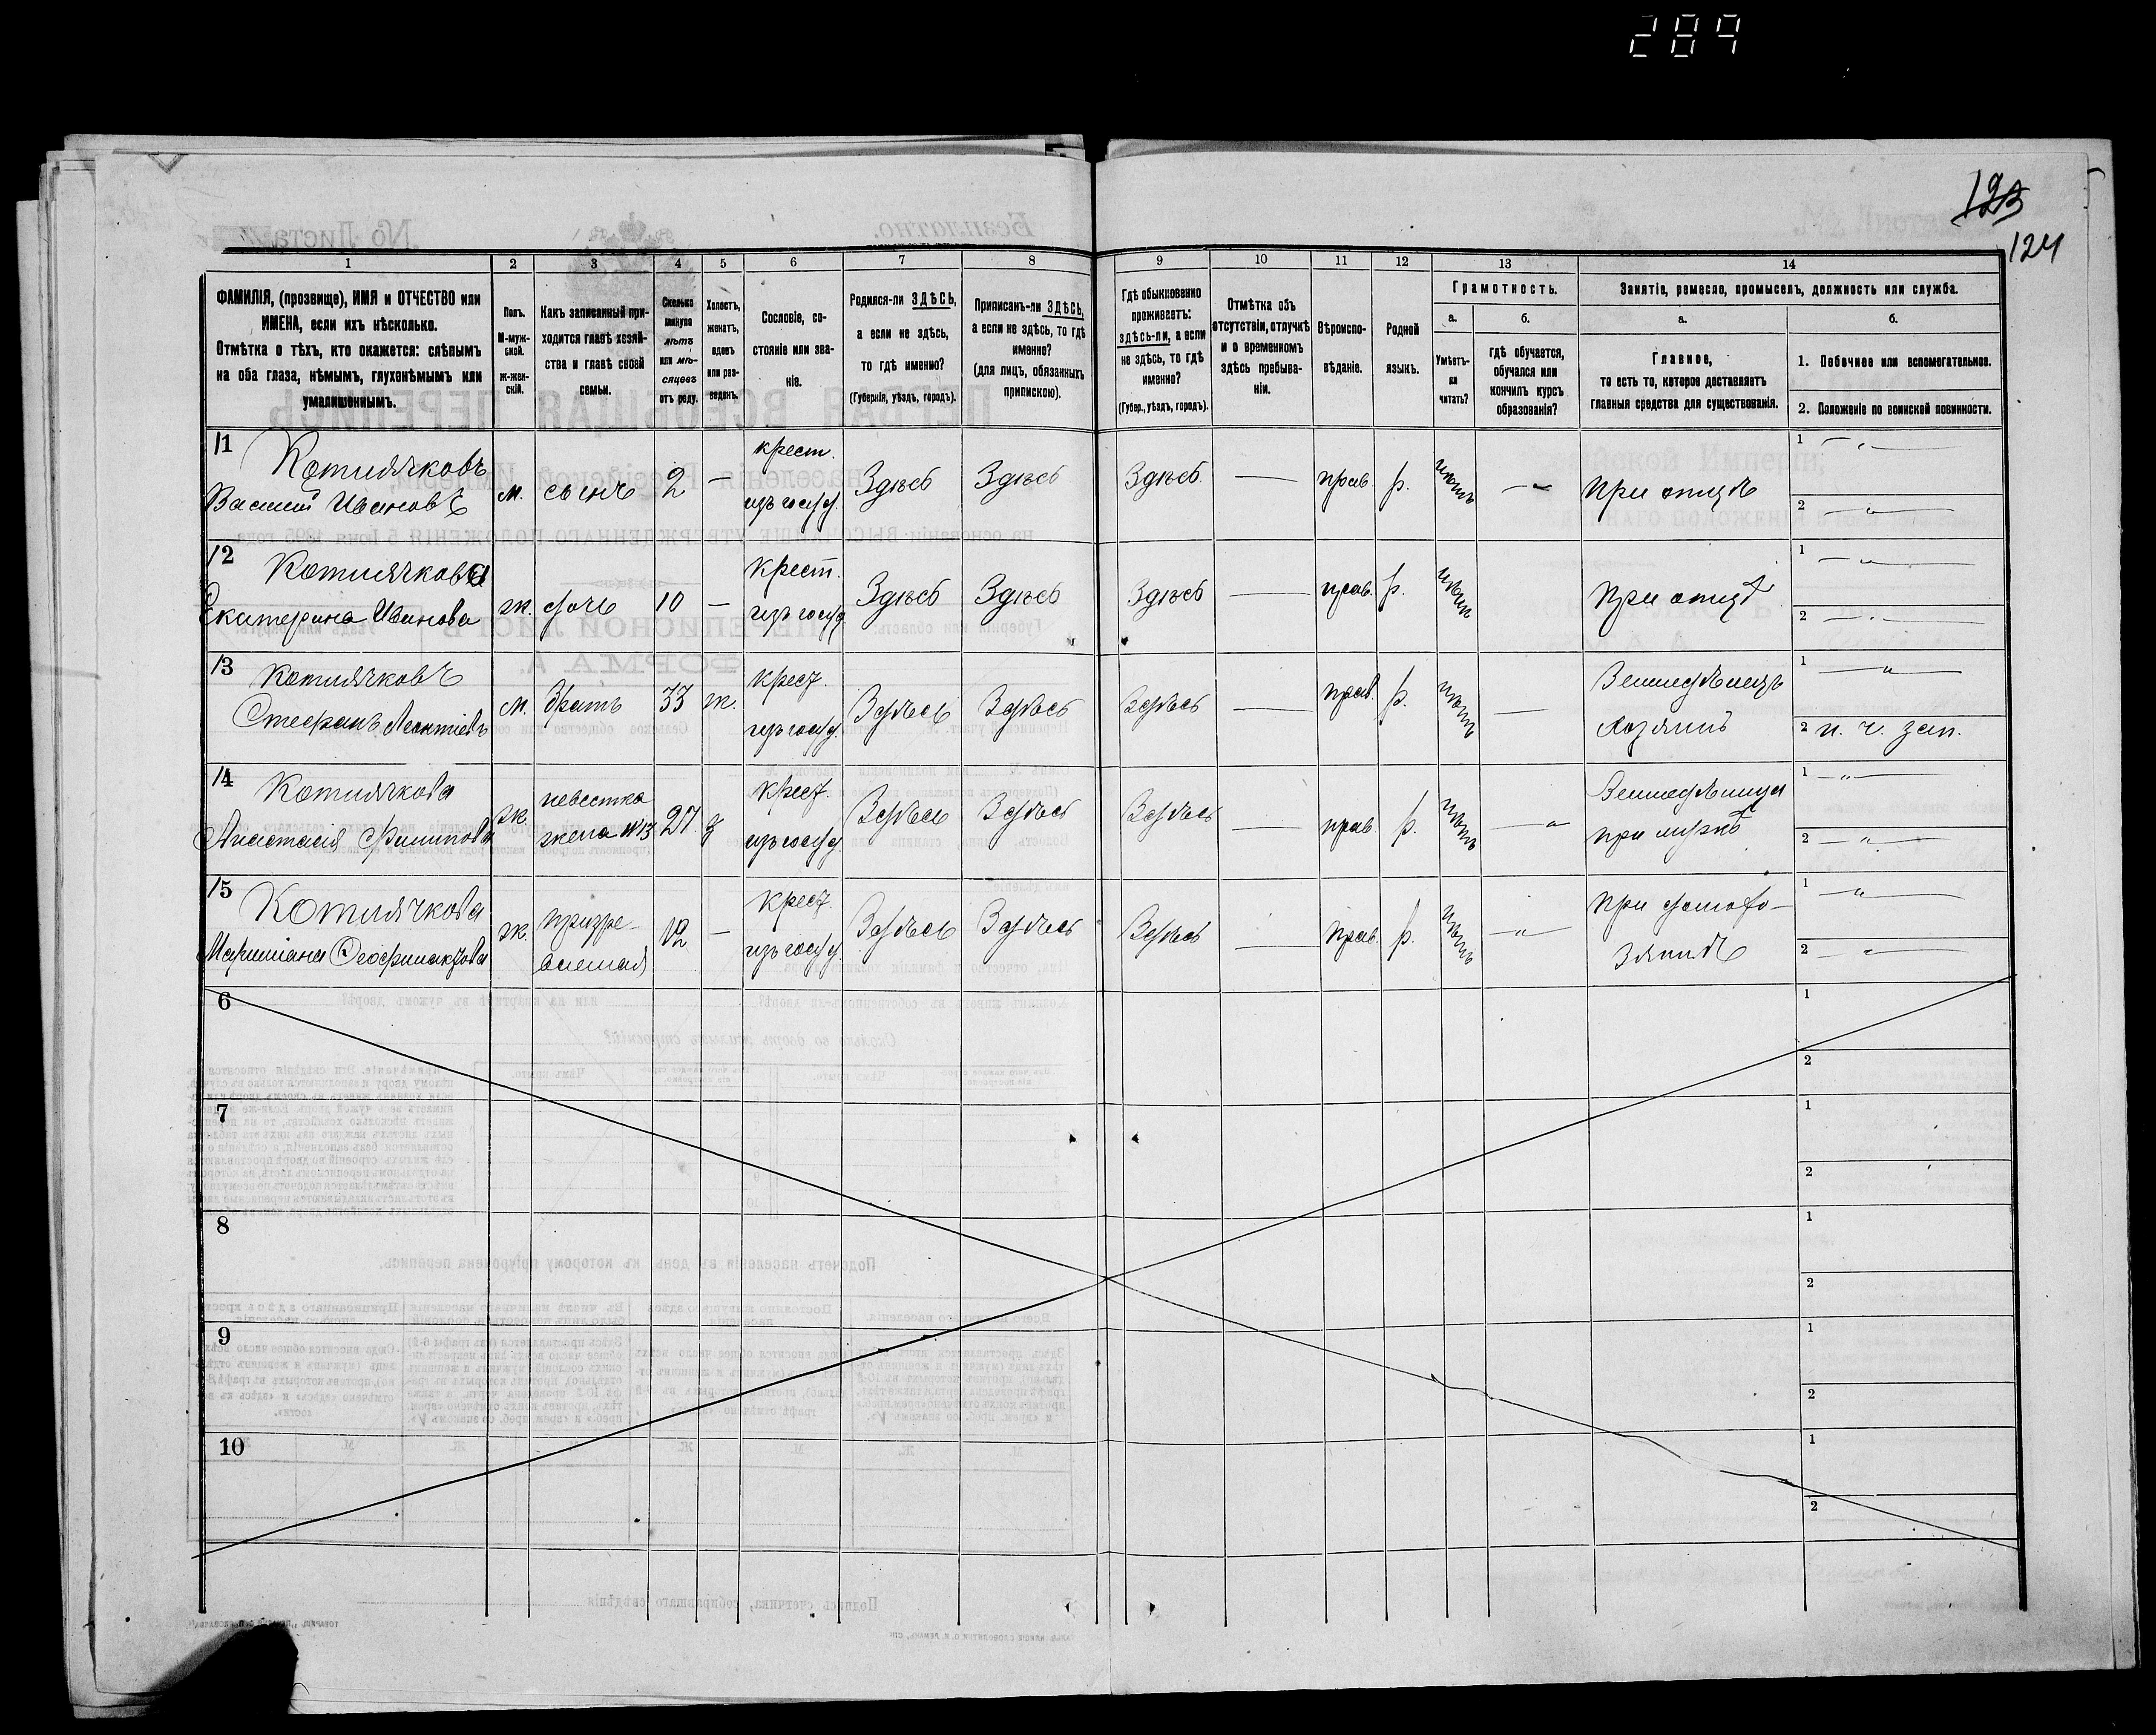 289
123
124
1 2 3 4 5 6 7 8 9 10 11 12 13 14
ФАМИЛІЯ, (прозвище), ИМЯ и ОТЧЕСТВО или
ИМЕНА, если ихъ нѣсколько.
Отмѣтка о тѣхъ, кто окажется: слѣпымъ
на оба глаза, нѣмымъ, глухонѣмымъ или
умалишоннымъ.
Полъ.
М-муж-
ской.
Ж-жен-
скій.
Какъ записанный при-
ходится главѣ хозяй-
ства и главѣ своей
семьи.
Сколько
минуло
лѣтъ
или мѣ-
сяцевъ
отъ роду.
Холостъ,
женатъ,
вдовъ
или раз-
веденъ.
Сословіе, со-
стояніе или зва-
ніе.
Родился-ли ЗДѢСЬ,
а если не здѣсь,
то гдѣ именно?
(Губернія, уѣздъ, городъ).
Приписанъ-ли ЗДѢСЬ,
а если не здѣсь, то гдѣ
именно?
(для лицъ, обязанныхъ
припискою).
Гдѣ обыкновенно
проживаетъ:
здѣсь-ли, а если
не здѣсь, то гдѣ
именно?
(Губер., уѣздъ, городъ).
Отмѣтка объ
отсутствіи, отлучкѣ
и о временномъ
здѣсь пребыва-
ніи.
Вѣроиспо-
вѣданіе.
Родной
языкъ.
Грамотность.
а.
Умѣетъ-
ли
читать?
б.
гдѣ обучается,
обучался или
кончилъ курсъ
образованія?
Занятіе, ремесло, промыселъ, должность или служба.
а.
Главное,
то есть то, которое доставляетъ
главныя средства для существованія.
б.
1. Побочное или вспомогательное.
2. Положеніе по воинской повинности.
11 Котлячковъ
Василій Ивановъ м. сынъ 2 — крест. Здѣсь Здѣсь Здѣсь — прав. р. нѣтъ — при отцѣ
1 — „ —
2 — „ —
12 Котлячкова
Екатерина Иванова ж. дочь 10 — крест. Здѣсь Здѣсь Здѣсь — прав. р. нѣтъ при отцѣ
1 — „ —
2 — „ —
13 Котлячковъ
Стефанъ Леонтіевъ м. братъ 33 ж. крест. Здѣсь Здѣсь Здѣсь — прав. р. нѣтъ — Земледѣлецъ
хозяинъ
1 — „ —
2 н. ч. зап.
14 Котлячкова
Анастасія Филипова ж. невестка
жена №13 27 з крест. Здѣсь Здѣсь Здѣсь — прав. р. нѣтъ — „ Земледѣлица
при мужѣ
1 — „ —
2 — „ —
15 Котлячкова
ж. призре-
ваемая 12 — крест. Здѣсь Здѣсь Здѣсь — прав. р. нѣтъ — „ — при домохо-
зяинѣ
1 — „ —
2 — „ —
6 1
2
7 1
2
8 1
2
9 1
2
10 1
2